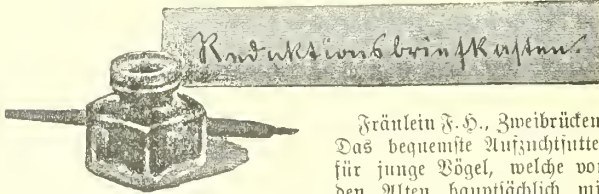 Redaktionsbriefkasten.
Fräulein F. H., Zweibrücken
Das bequemste Aufzuchtfutte
für junge Vögel, welche vo
den Alten hauptsächlich mi